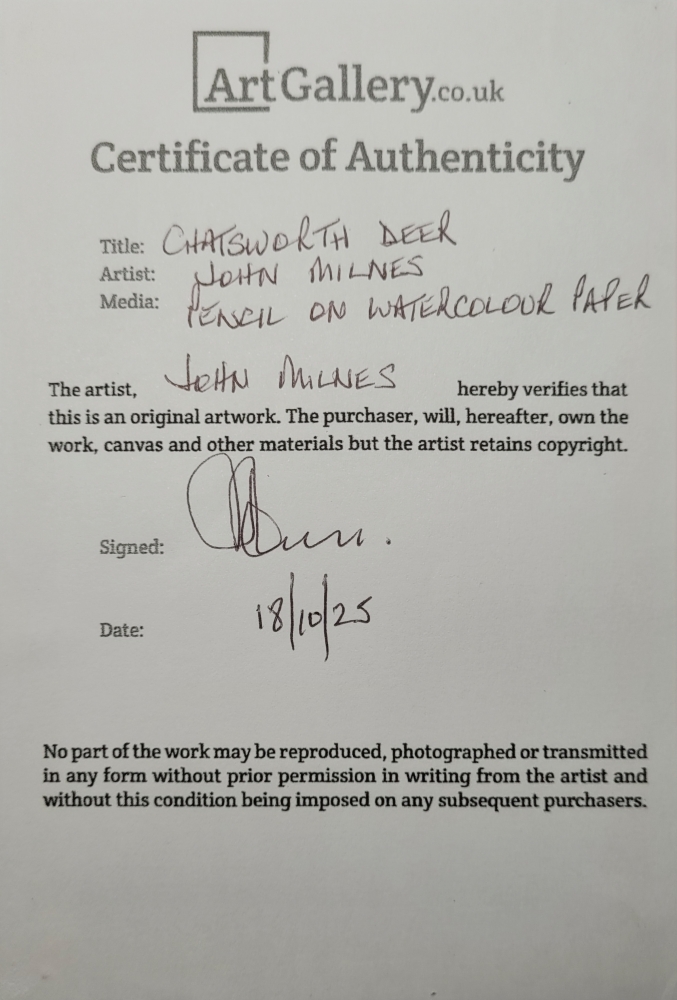 ArtGallery.co.uk
Certificate of Authenticity
Title: CHATSWORTH DEER
Artist: JOHN MILNES
Media: PENCIL ON WATERCOLOUR PAPER
The artist, JOHN MILNES hereby verifies that
this is an original artwork. The purchaser, will, hereafter, own the
work, canvas and other materials but the artist retains copyright.
Signed:
Date: 18/10/25
No part of the work may be reproduced, photographed or transmitted
in any form without prior permission in writing from the artist and
without this condition being imposed on any subsequent purchasers.